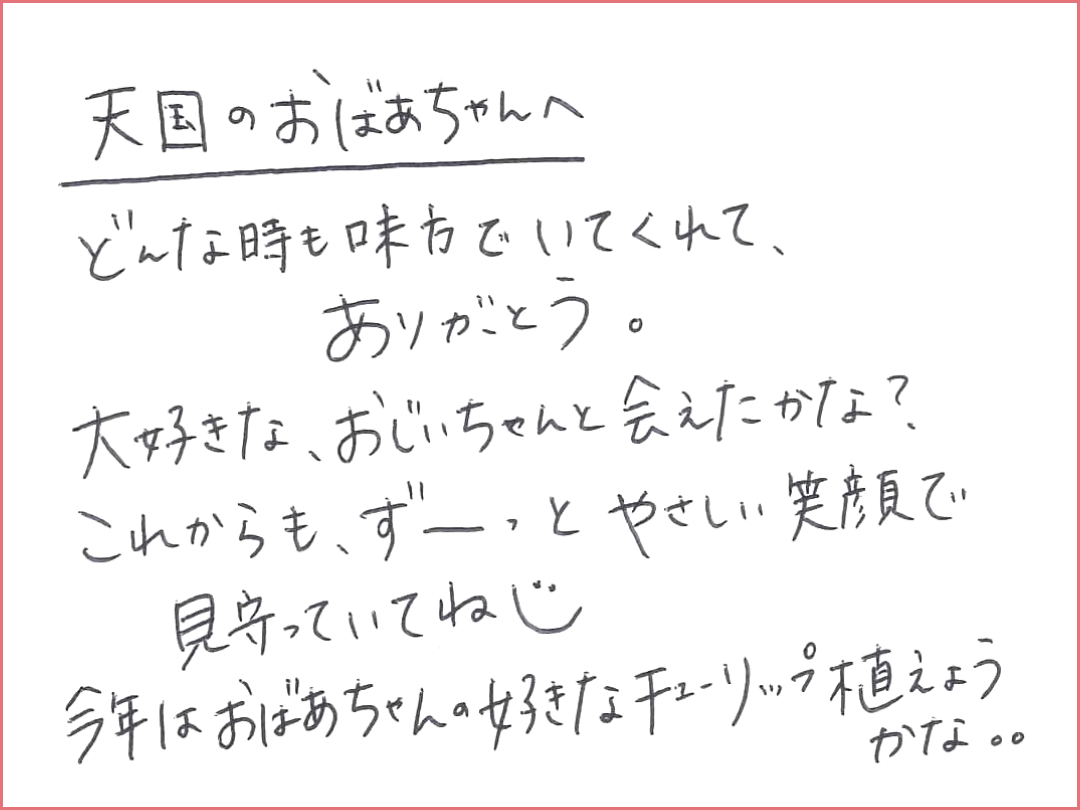 天国のおばあちゃんへ
どんな時も味方でいてくれて、
ありがとう。
大好きな、おじいちゃんと会えたかな?
これからも、ずーっとやさしい笑顔で
見守っていてね
今年はおばあちゃんの好きなチューリップ植えよう
かな..